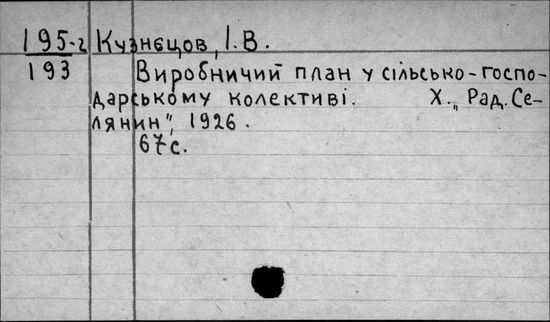 195-г Кузнєцов, І. В.
193 Виробничий план у сільсько-госпо-
дарському колективі. Х. „Рад. Се-
лянин", 1926.
67с.